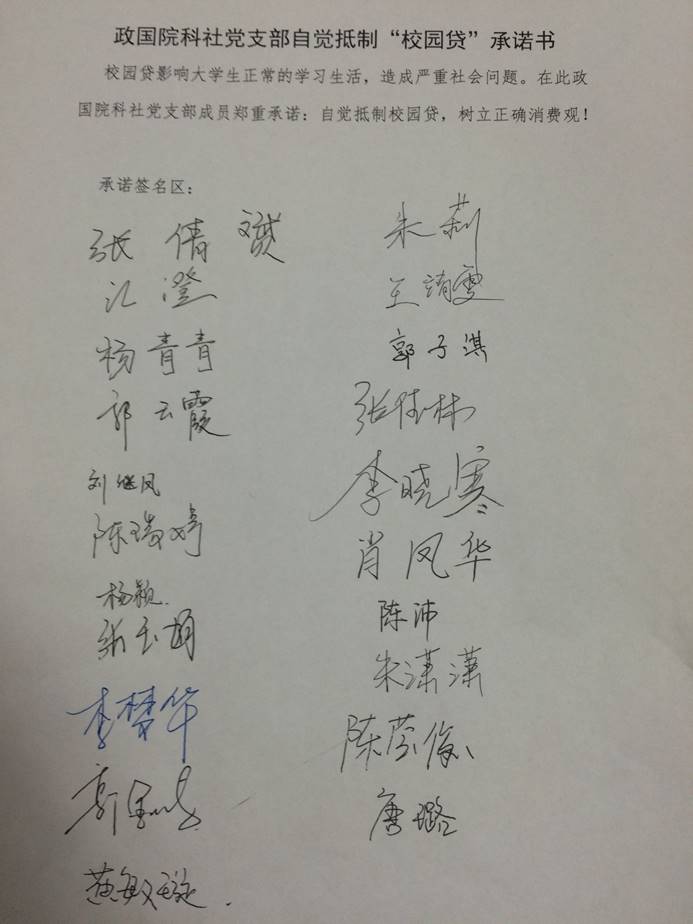 政国院科社党支部自觉抵制“校园贷”承诺书
校园贷影响大学生正常的学习生活，造成严重社会问题。在此政
国院科社党支部成员郑重承诺：自觉抵制校园贷，树立正确消费观！
承诺签名区：
张倩
朱莉
江澄
王靖雯
杨青青
郭子淇
郭云霞
张佳林
刘继凤
李晓寒
陈瑞婷
肖凤华
杨颖
陈沛
张玉娟
朱潇潇
李梦华
陈莹
唐璐
黄敏